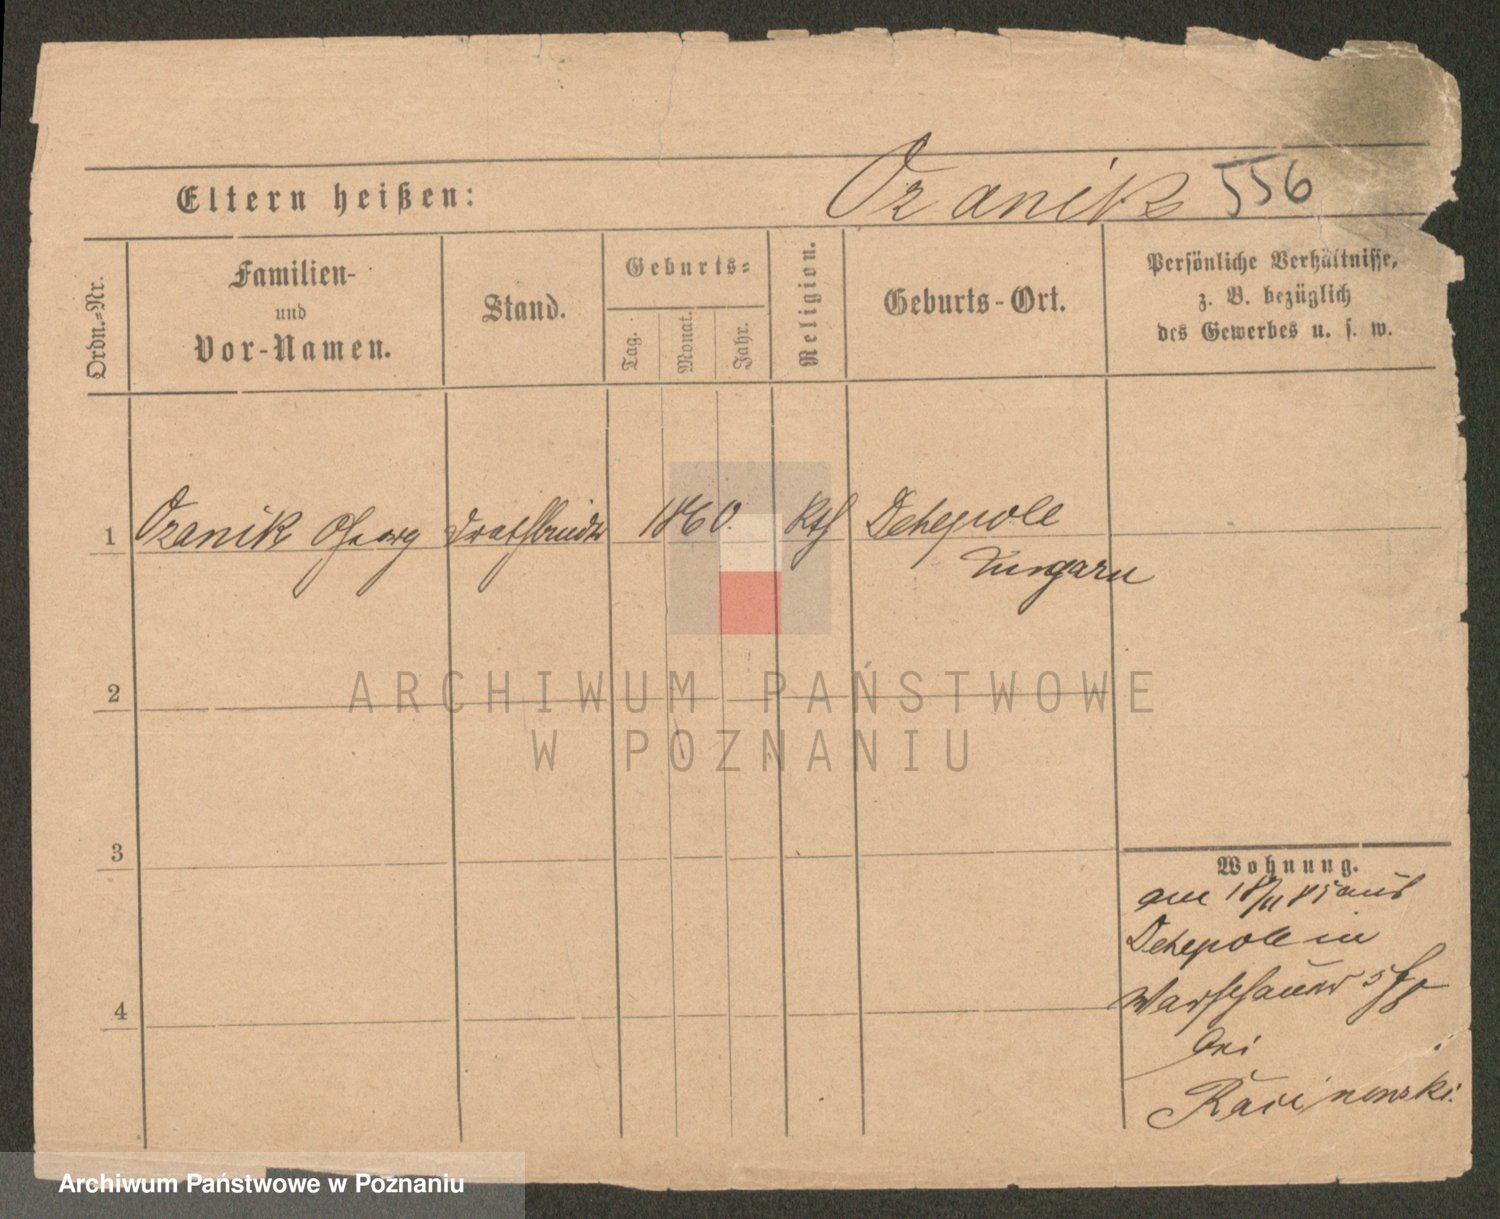 Eltern heißen: Ozanik 556
Ordn.-Nr.
Familien-
und
Vor-Namen.
Stand.
Geburts-
Tag.
Monat.
Jahr.
Religion.
Geburts-Ort.
Persönliche Verhältnisse,
z. B. bezüglich
des Gewerbes u. s. w.
1 Ozanik Georg Drathbinder 1860. kth Dehepole
Ungarn
2
3
4
Wohnung.
am 18/11 85 aus
Dehepole in
Warschauer
bei
ARCHIWUM PAŃSTWOWE
W POZNANIU
Archiwum Państwowe w Poznaniu